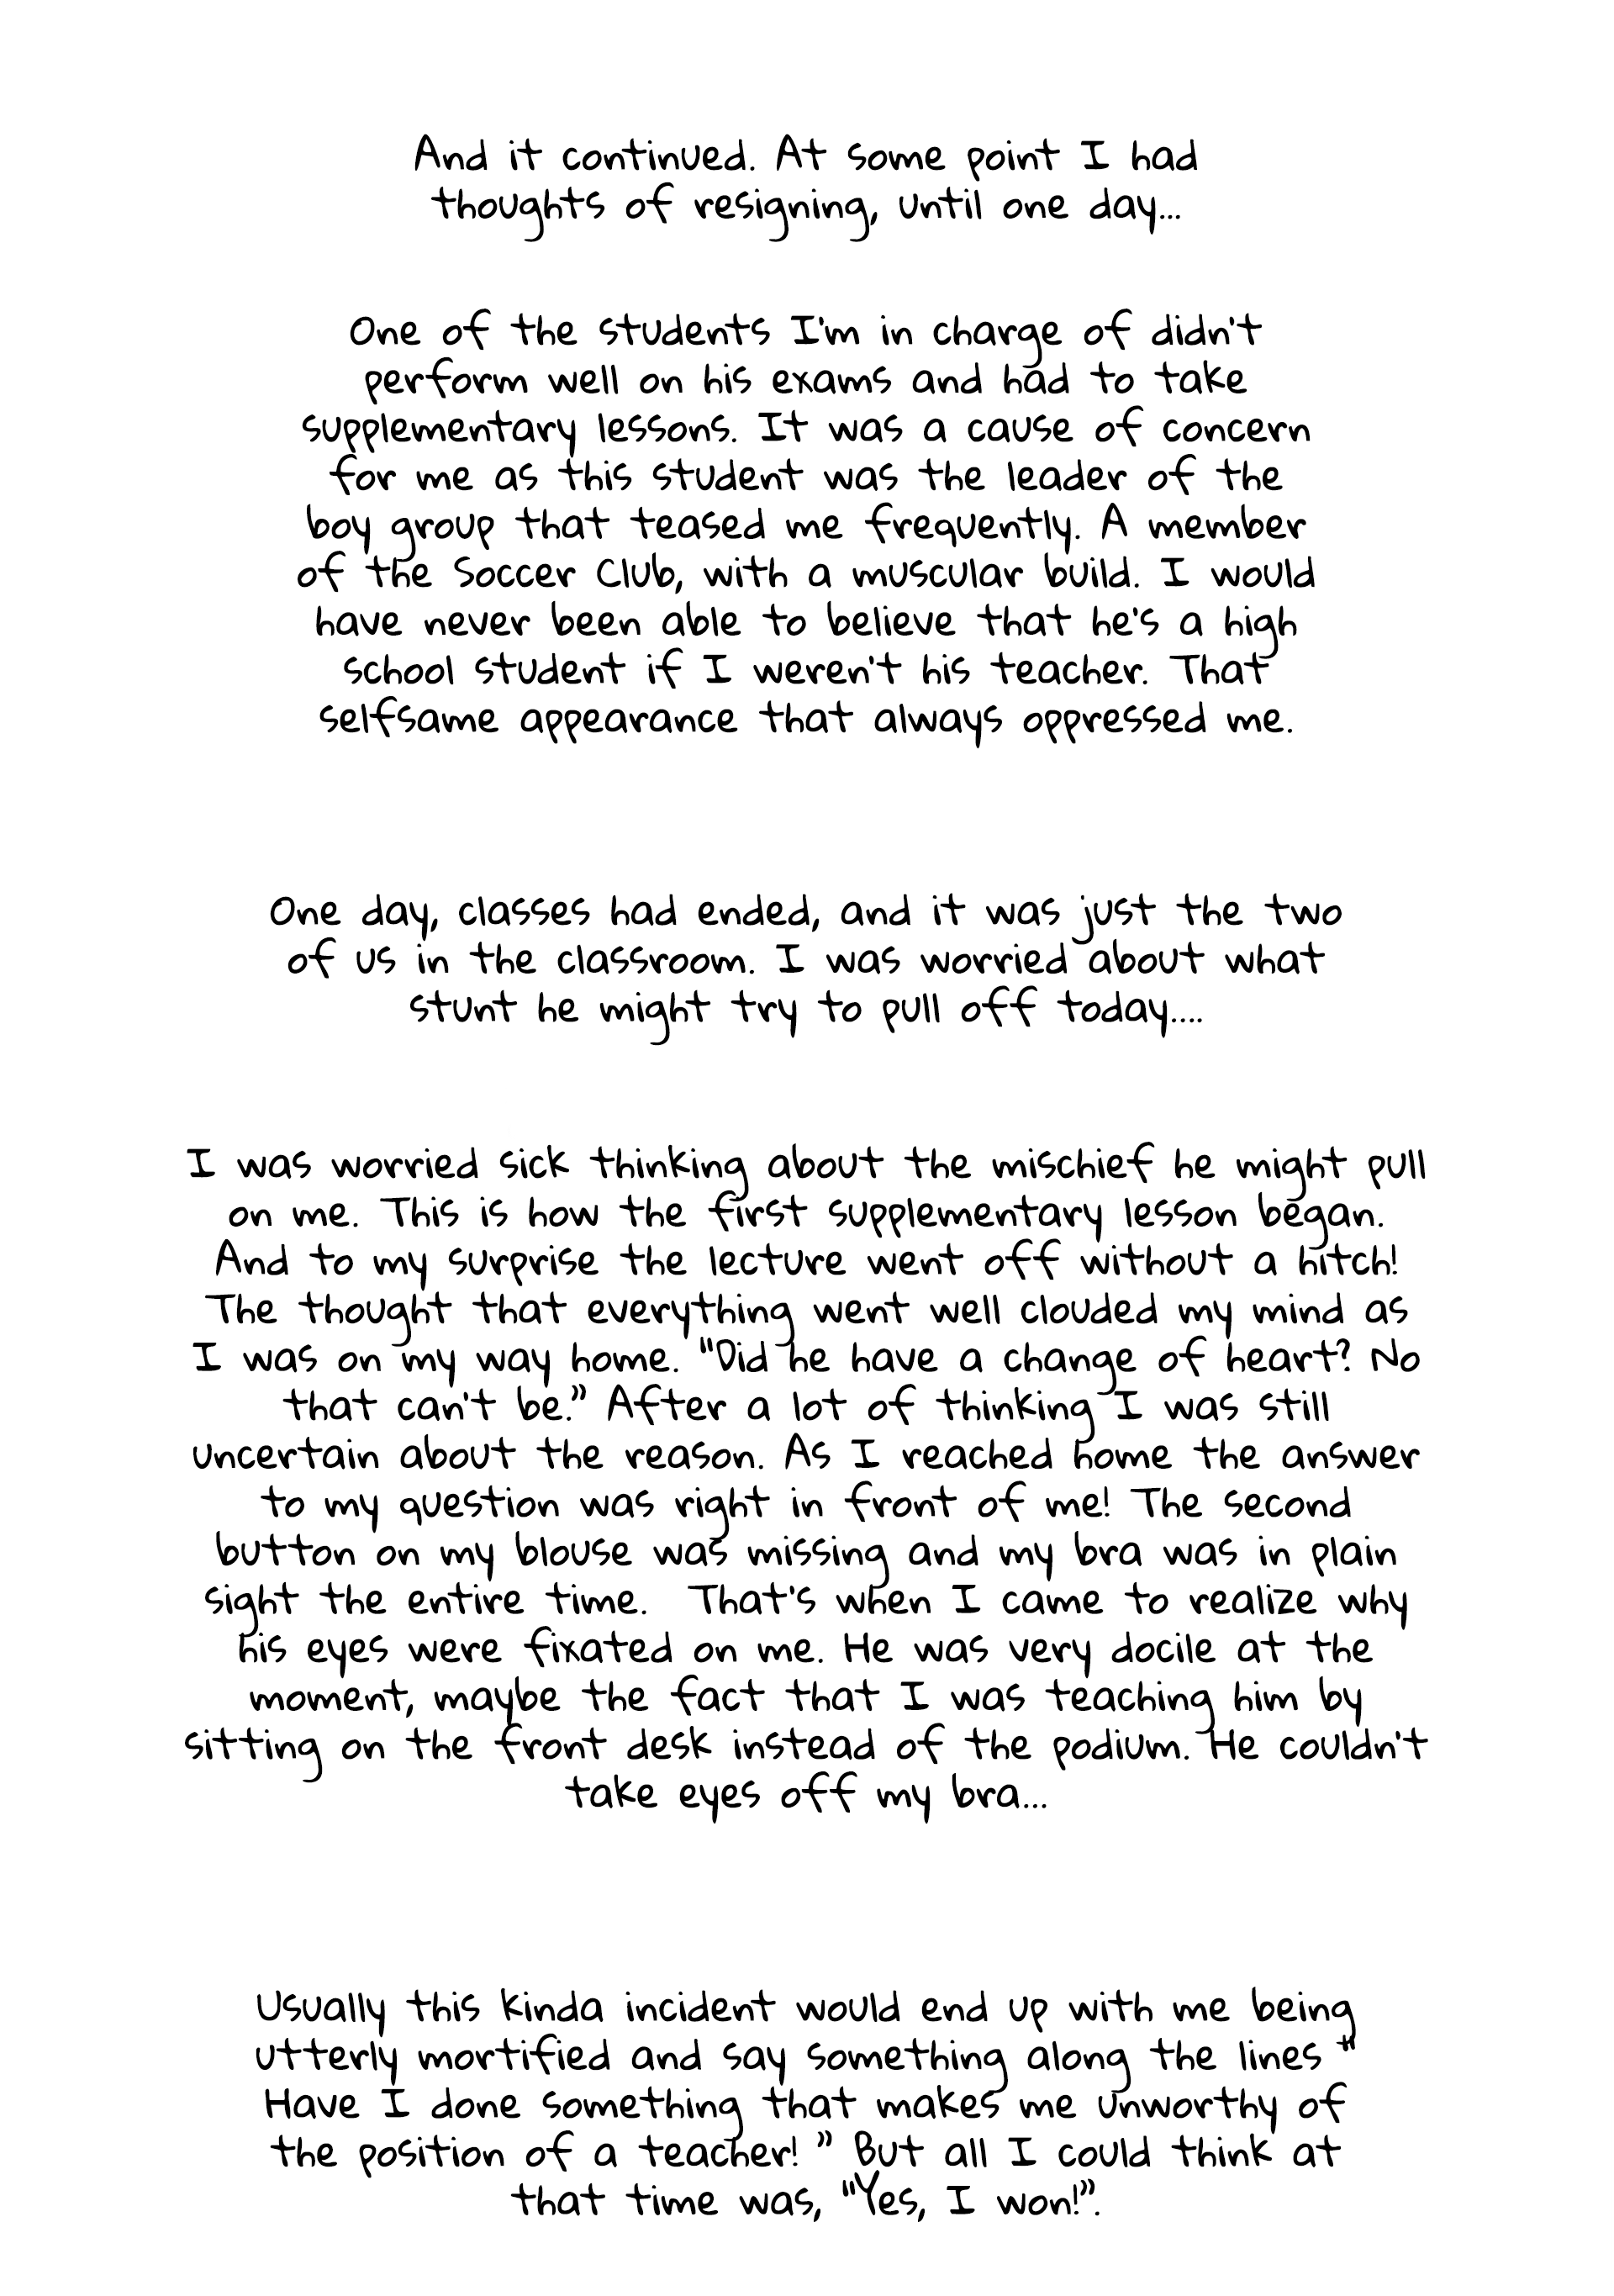 And it continued. At some point I had
thoughts of resigning, until one day...
One of the students I'm in charge of didn't
perform well on his exams and had to take
supplementary lessons. It was a cause of concern
for me as this student was the leader of the
boy group that teased me frequently. A member
of the Soccer Club, with a muscular build. I would
have never been able to believe that he's a high
school student if I weren't his teacher. That
selfsame appearance that always oppressed me.
One day, classes had ended, and it was just the two
of us in the classroom. I was worried about what
stunt he might try to pull off today....
I was worried sick thinking about the mischief he might pull
on me. This is how the first supplementary lesson began.
And to my surprise the lecture went off without a hitch!
The thought that everything went well clouded my mind as
I was on my way home. "Did he have a change of heart? No
that can't be.” After a lot of thinking I was still
uncertain about the reason. As I reached home the answer
to my question was right in front of me! The second
button on my blouse was missing and my bra was in plain
sight the entire time. That's when I came to realize why
his eyes were fixated on me. He was very docile at the
moment, maybe the fact that I was teaching him by
sitting on the front desk instead of the podium. He couldn't
take eyes off my bra...
Usually this kinda incident would end up with me being
utterly mortified and say something along the lines "
Have I done something that makes me unworthy of
the position of a teacher! ” But all I could think at
that time was, "Yes, I won!”.